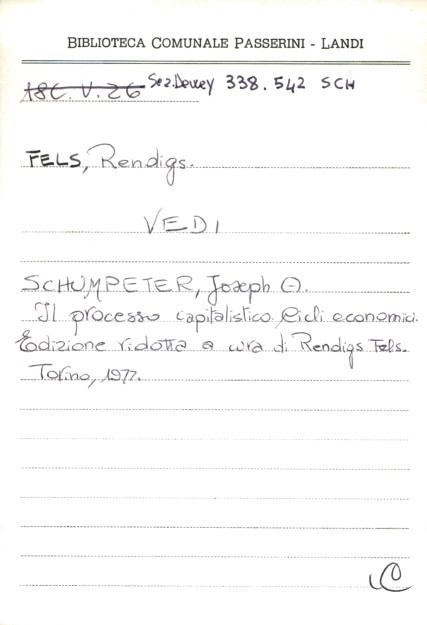 BIBLIOTECA COMUNALE PASSERINI - LANDI
18C. V. 26 Sez. Dewey 338.542 SCH
FELS, Rendigs.
VEDI
SCHUMPETER, Joseph A.
Il processo capitalistico. Cicli economici.
Edizione ridotta a cura di Rendigs Fels.
Torino, 1977.